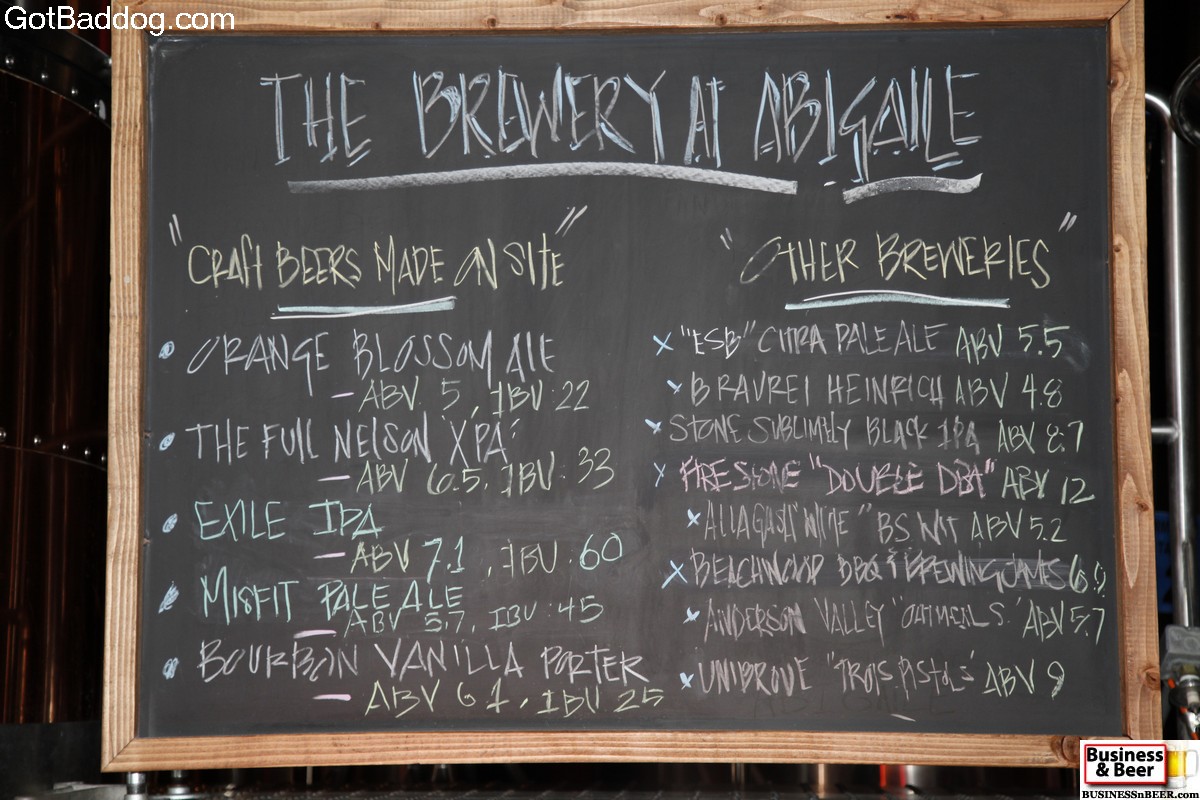 GotBaddog.com
THE BREWERY AT ABIGAILE
"CRAFT BEERS MADE ON SITE"
ORANGE BLOSSOM ALE
— ABV. 5, IBU: 22
THE FULL NELSON "XPA"
— ABV 6.5, IBU: 33
EXILE IPA
— ABV 7.1, IBU: 60
MISFIT PALE ALE
— ABV 5.7, IBU: 45
BOURBON VANILLA PORTER
— ABV 6.1, IBU 25
"OTHER BREWERIES"
x "ESB" CITRA PALE ALE ABV 5.5
x BRAUREI HEINRICH ABV 4.8
x STONE SUBLIMELY BLACK IPA ABV 8.7
x FIRESTONE "DOUBLE DBA" ABV 12
x ALLAGASH WIT ABV 5.2
x BEACHWOOD BBQ & BREWING
x ANDERSON VALLEY "OATMEAL S." ABV 5.7
x UNIBROUE "TROIS PISTOLS" ABV 9
Business
& Beer
BUSINESSnBEER.com